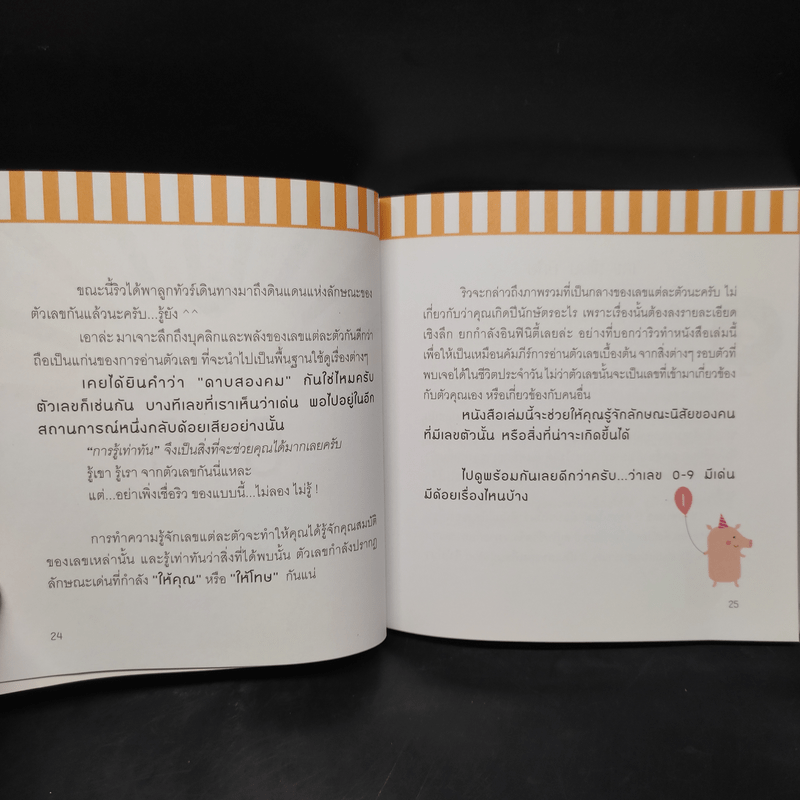 ขณะนี้ริวได้พาลูกทัวร์เดินทางมาถึงดินแดนแห่งลักษณะของ
ตัวเลขกันแล้วนะครับ...รู้ยัง ^^
เอาล่ะ มาเจาะลึกถึงบุคลิกและพลังของเลขแต่ละตัวกันดีกว่า
ถือเป็นแก่นของการอ่านตัวเลข ที่จะนำไปเป็นพื้นฐานใช้ดูเรื่องต่างๆ
เคยได้ยินคำว่า "ดาบสองคม" กันใช่ไหมครับ
ตัวเลขก็เช่นกัน บางทีเลขที่เราเห็นว่าเด่น พอไปอยู่ในอีก
สถานการณ์หนึ่งกลับด้อยเสียอย่างนั้น
"การรู้เท่าทัน" จึงเป็นสิ่งที่จะช่วยคุณได้มากเลยครับ
รู้เขา รู้เรา จากตัวเลขกันนี่แหละ
แต่...อย่าเพิ่งเชื่อริว ของแบบนี้...ไม่ลอง ไม่รู้ !
การทำความรู้จักเลขแต่ละตัวจะทำให้คุณได้รู้จักคุณสมบัติ
ของเลขเหล่านั้น และรู้เท่าทันว่าสิ่งที่ได้พบนั้น ตัวเลขกำลังปรากฏ
ลักษณะเด่นที่กำลัง "ให้คุณ" หรือ "ให้โทษ" กันแน่
24
ริวจะกล่าวถึงภาพรวมที่เป็นกลางของเลขแต่ละตัวนะครับ ไม่
เกี่ยวกับว่าคุณเกิดปีนักษัตรอะไร เพราะเรื่องนั้นต้องลงรายละเอียด
เชิงลึก ยกกำลังอินฟินิตี้เลยล่ะ อย่างที่บอกว่าริวทำหนังสือเล่มนี้
เพื่อให้เป็นเหมือนคัมภีร์การอ่านตัวเลขเบื้องต้น จากสิ่งต่างๆ รอบตัวที่
พบเจอได้ในชีวิตประจำวัน ไม่ว่าตัวเลขนั้นจะเป็นที่เข้ามาเกี่ยวข้อง
กับตัวคุณเอง หรือเกี่ยวข้องกับคนอื่น
หนังสือเล่มนี้จะช่วยให้คุณรู้จักลักษณะนิสัยของคน
ที่มีเลขตัวนั้น หรือสิ่งที่น่าจะเกิดขึ้นได้
ไปดูพร้อมกันเลยดีกว่าครับ...ว่าเลข 0-9 มีเด่น
มีด้อยเรื่องไหนบ้าง
1
25